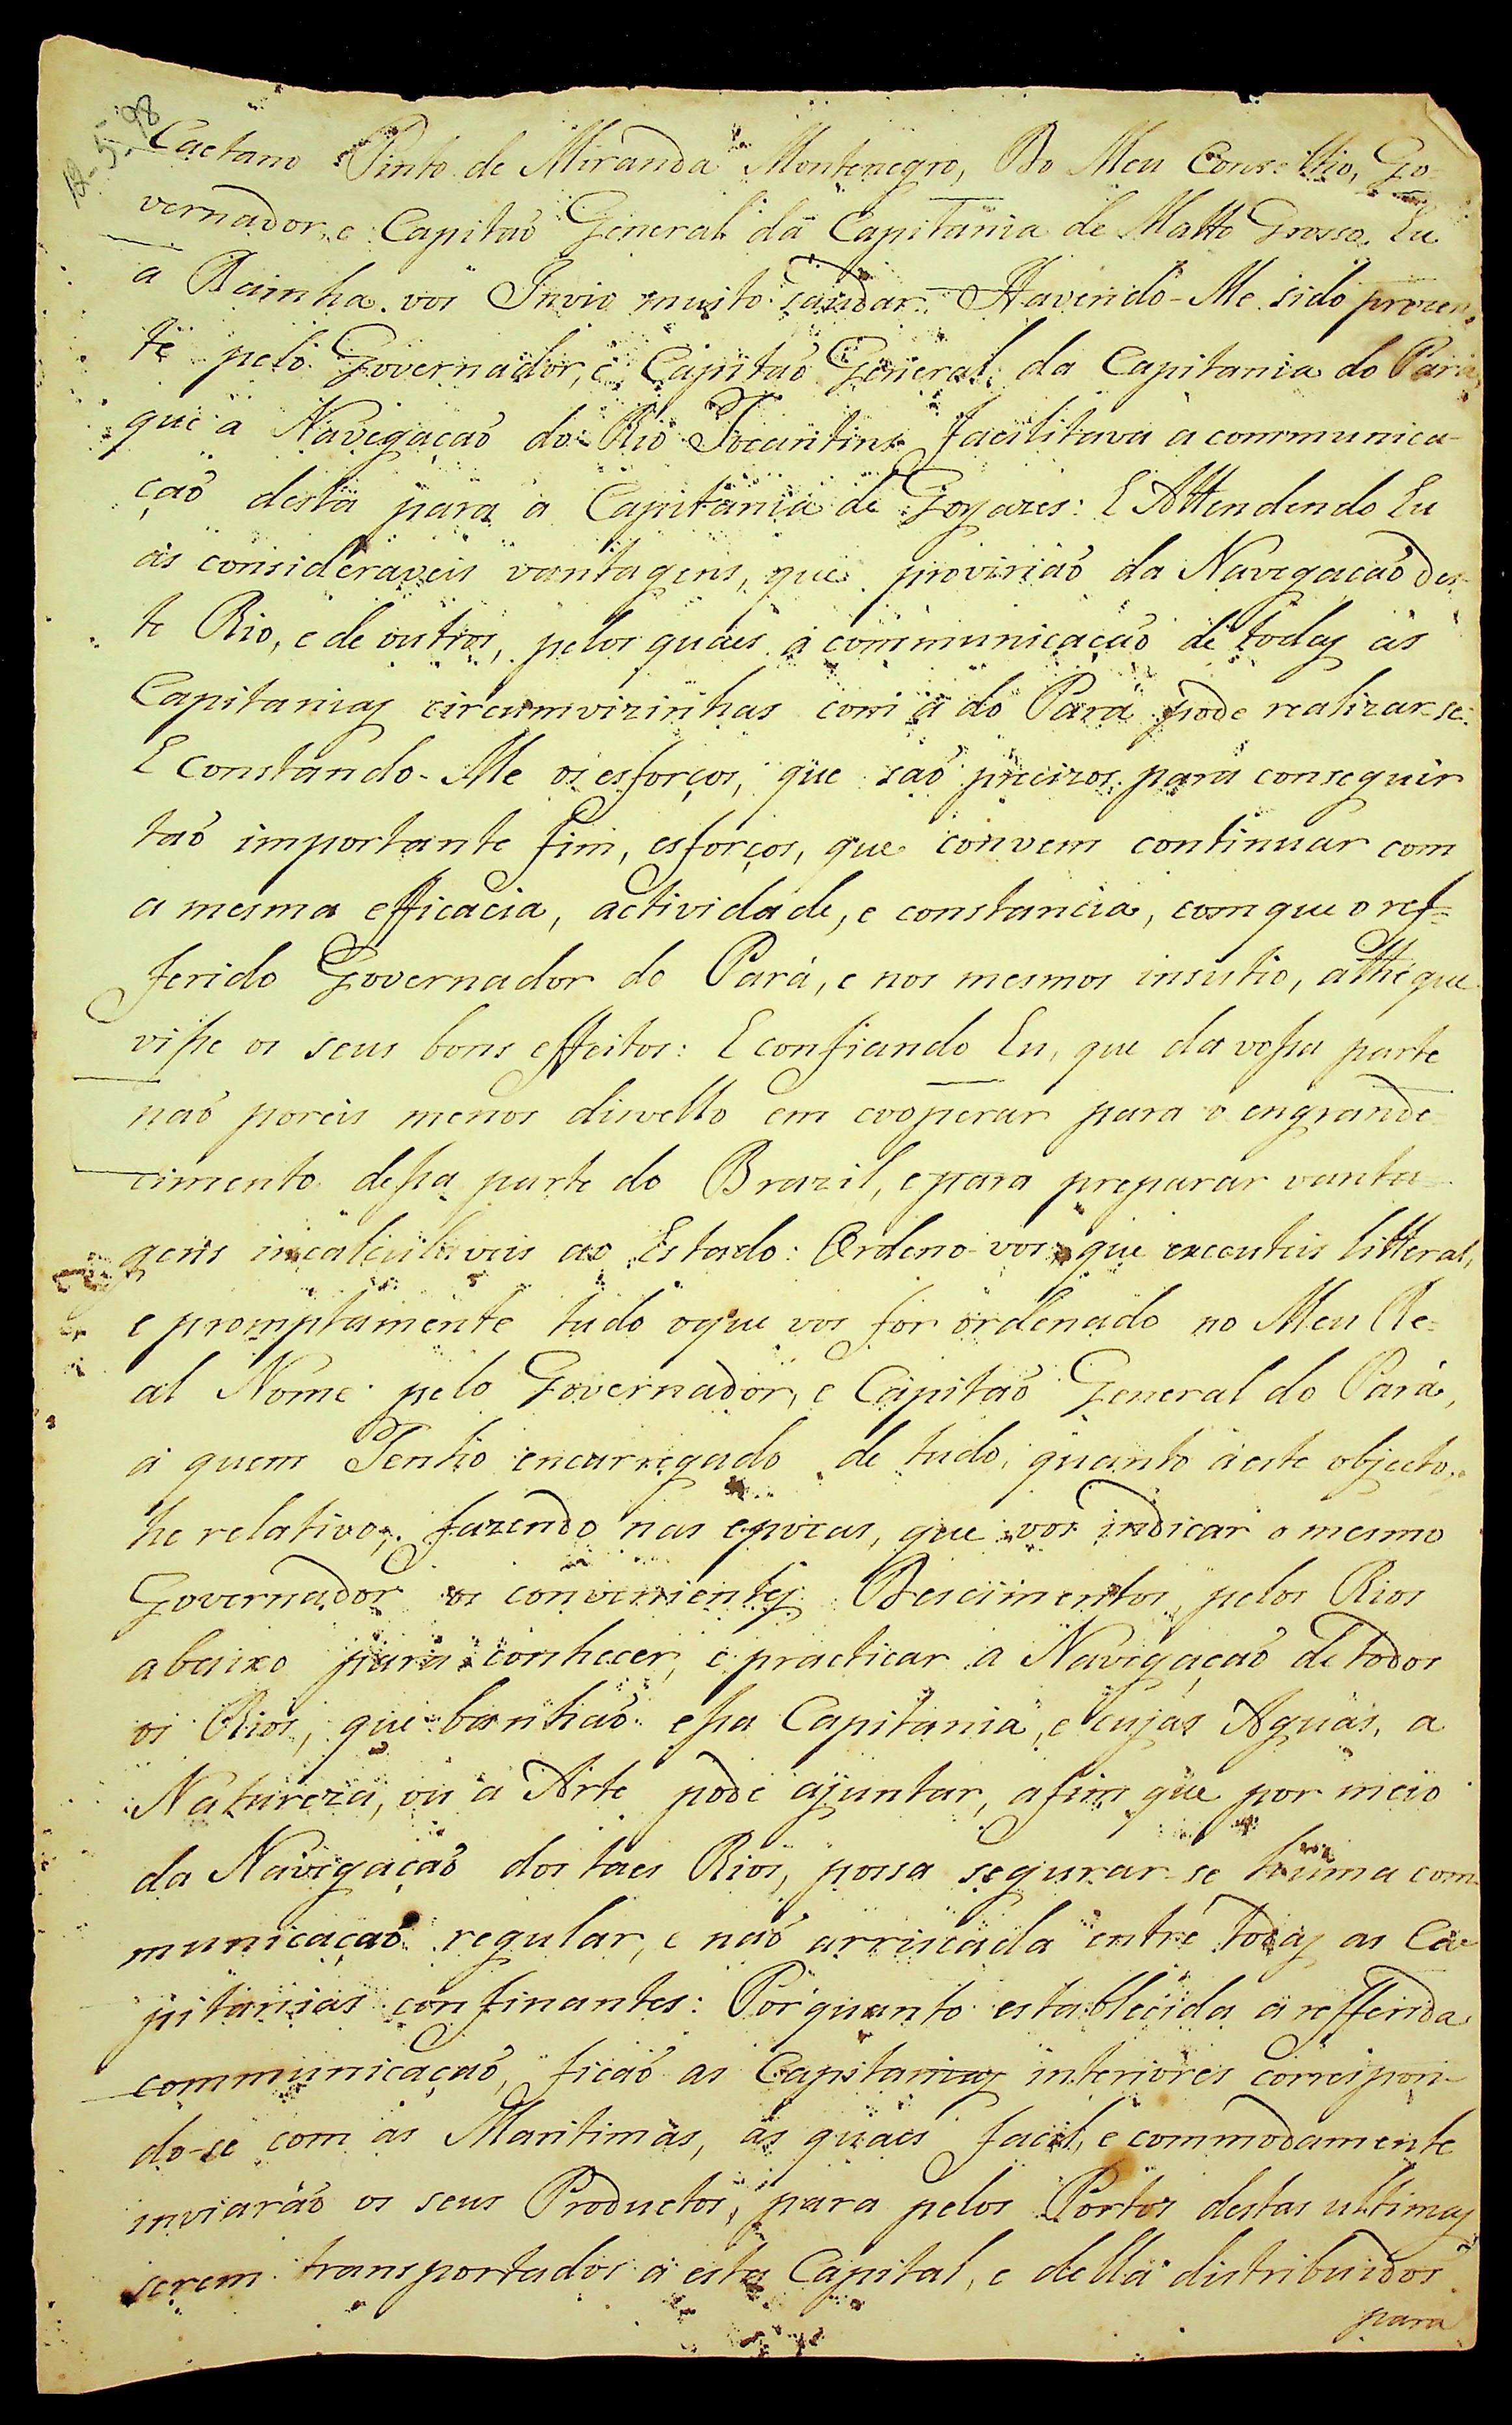 12-5-98
Caetano Pinto de Miranda Montenegro, Do Meu Conselho, Go-
vernador, e Capitaõ General da Capitania de Matto Grosso. Eu
a Rainha vos Invio muito saudar. Havendo-Me sido prezen-
te pelo Governador, e Capitaõ General da Capitania do Pará,
que a Navegaçaõ do Rio Tocantins facilitava a communica-
çaõ desta para a Capitania de Goyazes: E Attendendo Eu
ás consideraveis vantagens, que proviriaõ da Navegaçaõ des-
te Rio, e de outros, pelos quaes a communicaçaõ de todas as
Capitanias circumvizinhas com a do Pará pode realizar-se:
E Constando-Me os esforços, que saõ precizos para conseguir
taõ importante fim, esforços, que convem continuar com
a mesma efficacia, actividade, e constancia, com que o ref-
ferido Governador do Pará, e nos mesmos insistio, athé que
visse os seus bons effeitos: E confiando Eu, que da vossa parte
naõ poreis menos disvello em cooperar para o engrande-
cimento dessa parte do Brazil, e para preparar vanta-
gens incalculaveis ao Estado: Ordeno-vos que executeis litteral,
e promptamente tudo oque vos for ordenado no Meu Re-
al Nome pelo Governador, e Capitaõ General do Pará,
a quem Tenho encarregado de tudo, quanto á este objecto
he relativo; fazendo nas epocas, que vos indicar o mesmo
Governador os convenientes Descimentos pelos Rios
abaixo para conhecer, e practicar a Navegaçaõ de todos
os Rios, que banhaõ essa Capitania, e cujas Aguas, a
Natureza, ou a Arte pode ajuntar, afim que por meio
da Navegaçaõ dos taes Rios, possa segurar-se huma com-
municaçaõ regular, e naõ arriscada entre todas as Ca-
pitanias confinantes: Porquanto establlecida a refferida
communicaçaõ, ficaõ as Capitanias interiores correspon-
do-se com as Maritimas, ás quaes facil, e commodamente
inviaráõ os seus Productos, para pelos Portos destas ultimas
serem transportados a esta Capital, e della distribuidos
para